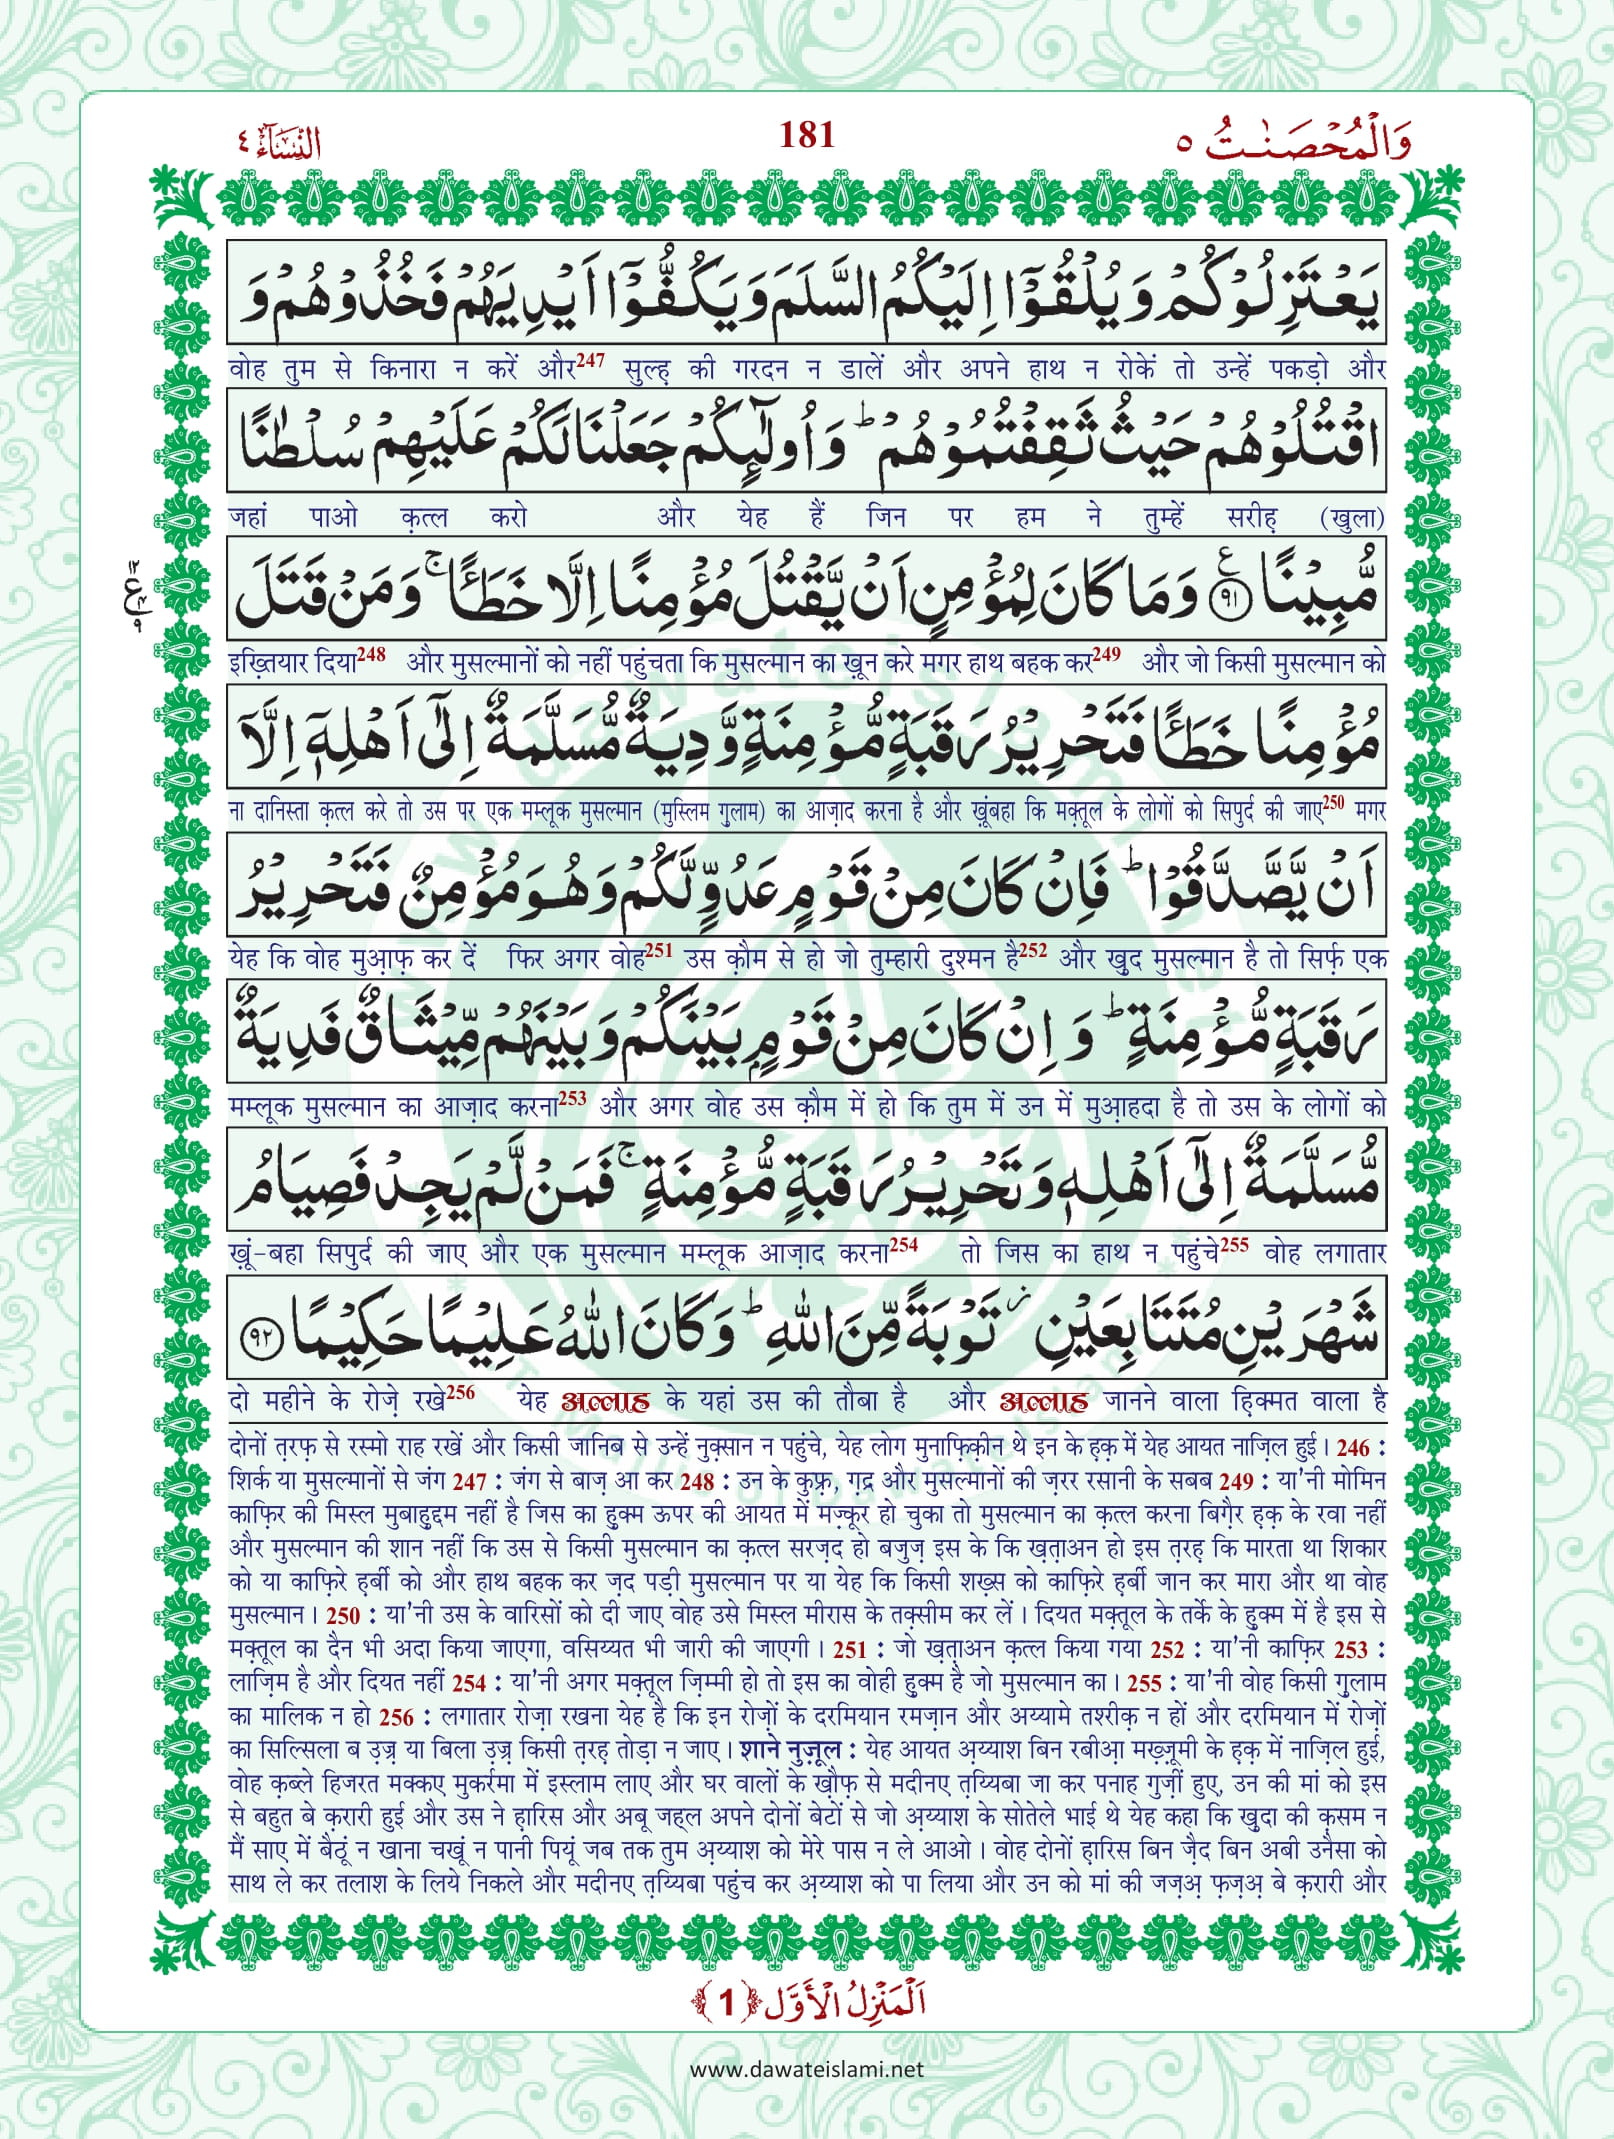 وَالْمُحْصَنٰتُ ٥
181
النِّسَآء ٤
يَعْتَزِلُوْكُمْ وَ يُلْقُوْۤا اِلَيْكُمُ السَّلَمَ وَ يَكُفُّوْۤا اَيْدِيَهُمْ فَخُذُوْهُمْ وَ
वोह तुम से किनारा न करें और247 सुल्ह़ की गरदन न डालें और अपने हाथ न रोकें तो उन्हें पकड़ो और
اقْتُلُوْهُمْ حَيْثُ ثَقِفْتُمُوْهُمْ ؕ وَ اُولٰٓىٕكُمْ جَعَلْنَا لَكُمْ عَلَيْهِمْ سُلْطٰنًا
जहां पाओ क़त्ल करो और येह हैं जिन पर हम ने तुम्हें सरीह़ (खुला)
مُّبِيْنًا ﴿٩١﴾ ع وَ مَا كَانَ لِمُؤْمِنٍ اَنْ يَّقْتُلَ مُؤْمِنًا اِلَّا خَطَـًٔا ۚ وَ مَنْ قَتَلَ
इख़्तियार दिया248 और मुसल्मानों को नहीं पहुंचता कि मुसल्मान का ख़ून करे मगर हाथ बहक कर249 और जो किसी मुसल्मान को
مُؤْمِنًا خَطَـًٔا فَتَحْرِيْرُ رَقَبَةٍ مُّؤْمِنَةٍ وَّ دِيَةٌ مُّسَلَّمَةٌ اِلٰۤى اَهْلِهٖۤ اِلَّاۤ
ना दानिस्ता क़त्ल करे तो उस पर एक मम्लूक मुसल्मान (मुस्लिम ग़ुलाम) का आज़ाद करना है और ख़ूंबहा कि मक़्तूल के लोगों को सिपुर्द की जाए250 मगर
اَنْ يَّصَّدَّقُوْا ؕ فَاِنْ كَانَ مِنْ قَوْمٍ عَدُوٍّ لَّكُمْ وَ هُوَ مُؤْمِنٌ فَتَحْرِيْرُ
येह कि वोह मुआ़फ़ कर दें फिर अगर वोह251 उस क़ौम से हो जो तुम्हारी दुश्मन है252 और ख़ुद मुसल्मान है तो सिर्फ़ एक
رَقَبَةٍ مُّؤْمِنَةٍ ؕ وَ اِنْ كَانَ مِنْ قَوْمٍۭ بَيْنَكُمْ وَ بَيْنَهُمْ مِّيْثَاقٌ فَدِيَةٌ
मम्लूक मुसल्मान का आज़ाद करना253 और अगर वोह उस क़ौम में हो कि तुम में उन में मुआ़हदा है तो उस के लोगों को
مُّسَلَّمَةٌ اِلٰۤى اَهْلِهٖ وَ تَحْرِيْرُ رَقَبَةٍ مُّؤْمِنَةٍ ۚ فَمَنْ لَّمْ يَجِدْ فَصِيَامُ
ख़ूं-बहा सिपुर्द की जाए और एक मुसल्मान मम्लूक आज़ाद करना254 तो जिस का हाथ न पहुंचे255 वोह लगातार
شَهْرَيْنِ مُتَتَابِعَيْنِ ؗ تَوْبَةً مِّنَ اللّٰهِ ؕ وَ كَانَ اللّٰهُ عَلِيْمًا حَكِيْمًا ﴿٩٢﴾
दो महीने के रोज़े रखे256 येह अल्लाह के यहां उस की तौबा है और अल्लाह जानने वाला हि़क्मत वाला है
दोनों त़रफ़ से रस्मो राह रखें और किसी जानिब से उन्हें नुक़्सान न पहुंचे, येह लोग मुनाफ़िक़ीन थे इन के ह़क़ में येह आयत नाज़िल हुई। 246 :
शिर्क या मुसल्मानों से जंग 247 : जंग से बाज़ आ कर 248 : उन के कुफ़्र, ग़द्र और मुसल्मानों की ज़रर रसानी के सबब 249 : या'नी मोमिन
काफ़िर की मिस्ल मुबाहुद्दम नहीं है जिस का हुक्म ऊपर की आयत में मज़्कूर हो चुका तो मुसल्मान का क़त्ल करना बिग़ैर ह़क़ के रवा नहीं
और मुसल्मान की शान नहीं कि उस से किसी मुसल्मान का क़त्ल सरज़द हो बजुज़ इस के कि ख़त़ाअन हो इस त़रह़ कि मारता था शिकार
को या काफ़िरे ह़र्बी को और हाथ बहक कर ज़द पड़ी मुसल्मान पर या येह कि किसी शख़्स को काफ़िरे ह़र्बी जान कर मारा और था वोह
मुसल्मान। 250 : या'नी उस के वारिसों को दी जाए वोह उसे मिस्ल मीरास के तक़्सीम कर लें। दियत मक़्तूल के तर्के के हुक्म में है इस से
मक़्तूल का दैन भी अदा किया जाएगा, वसिय्यत भी जारी की जाएगी। 251 : जो ख़त़ाअन क़त्ल किया गया 252 : या'नी काफ़िर 253 :
लाज़िम है और दियत नहीं 254 : या'नी अगर मक़्तूल ज़िम्मी हो तो इस का वोही हुक्म है जो मुसल्मान का। 255 : या'नी वोह किसी ग़ुलाम
का मालिक न हो 256 : लगातार रोज़ा रखना येह है कि इन रोज़ों के दरमियान रमज़ान और अय्यामे तश्रीक़ न हों और दरमियान में रोज़ों
का सिल्सिला ब उ़ज़्र या बिला उ़ज़्र किसी त़रह़ तोड़ा न जाए। शाने नुज़ूल : येह आयत अ़य्याश बिन रबीआ़ मख़्ज़ूमी के ह़क़ में नाज़िल हुई,
वोह क़ब्ले हिजरत मक्कए मुकर्रमा में इस्लाम लाए और घर वालों के ख़ौफ़ से मदीनए त़य्यिबा जा कर पनाह गुज़ीं हुए, उन की मां को इस
से बहुत बे क़रारी हुई और उस ने ह़ारिस और अबू जह्ल अपने दोनों बेटों से जो अ़य्याश के सोतेले भाई थे येह कहा कि ख़ुदा की क़सम न
मैं साए में बैठूं न खाना चखूं न पानी पियूं जब तक तुम अ़य्याश को मेरे पास न ले आओ। वोह दोनों ह़ारिस बिन ज़ैद बिन अबी उनैसा को
साथ ले कर तलाश के लिये निकले और मदीनए त़य्यिबा पहुंच कर अ़य्याश को पा लिया और उन को मां की जज़अ़ फ़ज़अ़ बे क़रारी और
اَلْمَنْزِلُ الْاَوَّل ﴿1﴾
www.dawateislami.net